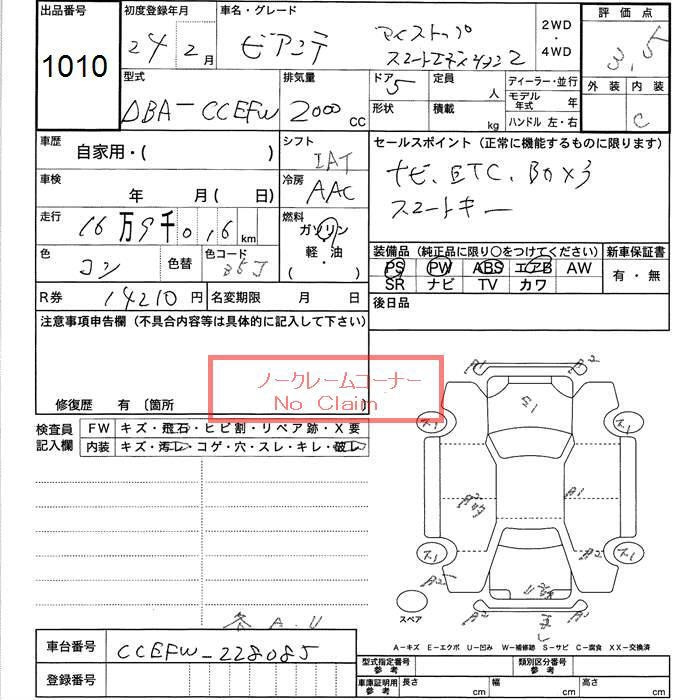 出品番号
1010
初度登録年月
24年2月
車名・グレード
ビアンテ
アイストップ
スマートエディション2
2WD
・
4WD
評価点
3.5
外装 内装
C
型式
DBA-CCEFW
排気量
2000
CC
ドア
5
定員
人
形状
積載
kg
ディーラー・並行
モデル年式 年
ハンドル 左・右
車歴
自家用・( )
シフト
IAT
冷房
AAC
車検
年 月( 日)
走行
16万9千016km
燃料
ガソリン
軽・油
( ・ )
色
コン
色替
色コード
35J
R券
14210円
名変期限 月 日
セールスポイント(正常に機能するものに限ります)
ナビ、ETC、Boxミラ
スマートキー
装備品(純正品に限り〇をつけてください)
PS PW ABS エアB AW
SR ナビ TV カワ
新車保証書
有・無
後日品
注意事項申告欄(不具合内容等は具体的に記入して下さい)
ノークレームコーナー
No Claim
修復歴 有〔箇所 〕
検査員
記入欄
FW キズ・飛石・ヒビ割・リペア跡・X要
内装 キズ・汚レ・コゲ・穴・スレ・キレ・破レ
各A.U
A2
A2
A1
A2
A2
A2
A2
スペア
A-キズ E-エクボ U-凹み W-補修跡 S-サビ C-腐食 XX-交換済
車台番号
CCEFW-228085
登録番号
型式指定番号
参考
類別区分番号
参考
車庫証明用
参考
長さ cm
幅 cm
高さ cm